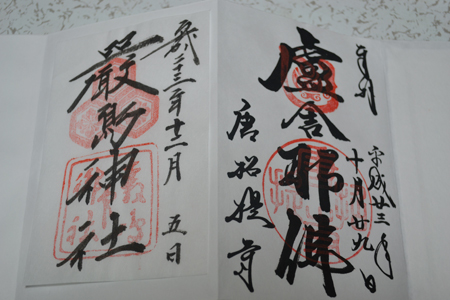 奉拝
平成廿三年
十月廿九日
盧舎那佛
唐招提寺
平成二十三年十二月 五日
嚴島神社